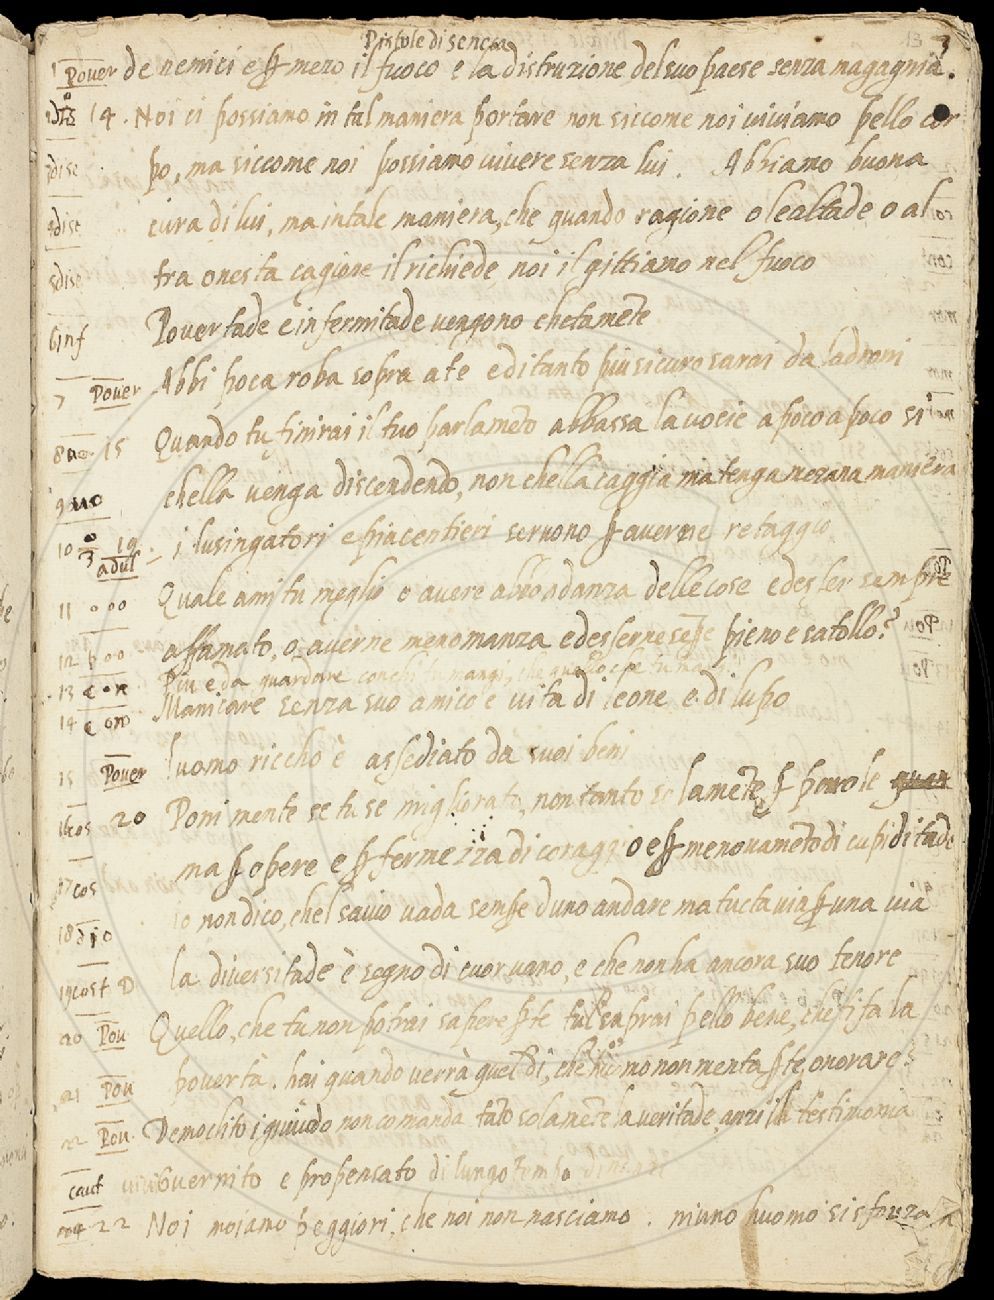 Pistole di seneca
3
Pouer de nemici e ꝑ mezo il fuoco e la distruzione del suo paese senza magagnia.
14. Noi ci possiamo in tal maniera portare non siccome noi viviamo pello cor
3dise po, ma siccome noi possiamo vivere senza lui. Abbiamo buona
4dise cura di lui, ma in tale maniera, che quando ragione o lealtade o al
5dise tra onesta cagione il richiede noi il gittiamo nel fuoco
6inf Povertade e infermitade vengono chetamēte
7 Pouer Abbi poca roba sopra a te e di tanto più sicuro sarai da ladroni
8 15 Quando tu finirai il tuo parlamēto abbassa la vocie a poco a poco si
9 chella venga discendendo, non chella caggia ma tenga mezana maniera
10 19 adul i lusingatori e piacentieri servono ꝑ averne retaggio
11 Quale ami tu meglio o avere abbōdanza delle cose ed esser sempre
12 affamato, o averne meno manza ed esserne sēpe pieno e satollo?
13 Piu e da guardare con chi tu mangi, che quello che tu
14 Manicare senza suo amico e vita di leone e di lupo
15 Pouer luomo riccho è assediato da suoi beni
16cos 20 Poni mente se tu se migliorato, non tanto solamēte ꝑ parole
17cos ma ꝑ opere e ꝑ fermezza di coraggio e ꝑ menovamēto di cupiditade
18 io non dico, chel savio vada sempe duno andare ma tuctavia ꝑ una via
19cost la diversitade è segno di cuor vano, e che non ha ancora suo tenore
20 Pou Quello, che tu non potrai sapere ꝑ te tul saprai pello bene, che ti fa la
21 Pou povertà. hai quando verrà quel di, che niūo mōmenta ꝑ te onorare?
22 Pou Democlito ignudo non comanda tāto solamēte la veritade anzi il testimonia
caut provveduto e propensato di lungo tempo
24 22 Noi moiamo peggiori, che noi non nasciamo. niuno huomo si sforza